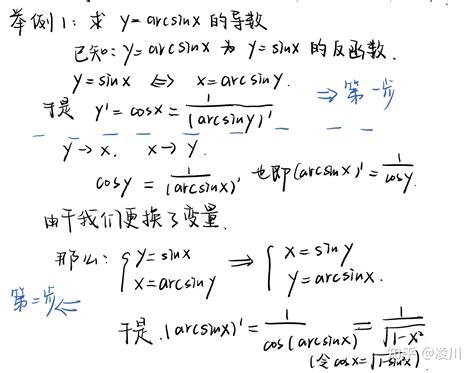 举例1：求 y=arcsinx 的导数
已知：y=arcsinx 为 y=sinx 的反函数.
y=sinx ⇔ x=arcsiny.
于是 y'=cosx=1/(arcsiny)' ⇒第一步
y→x. x→y.
cosy=1/(arcsinx)' 也即(arcsinx)'=1/cosy.
由于我们更换了变量.
那么：{y=sinx x=arcsiny ⇒ {x=siny y=arcsinx.
第二步⇐
于是.(arcsinx)'=1/cos(arcsinx)=1/√1-x²
(令cosx=√1-sin²x)
知乎 @凌川